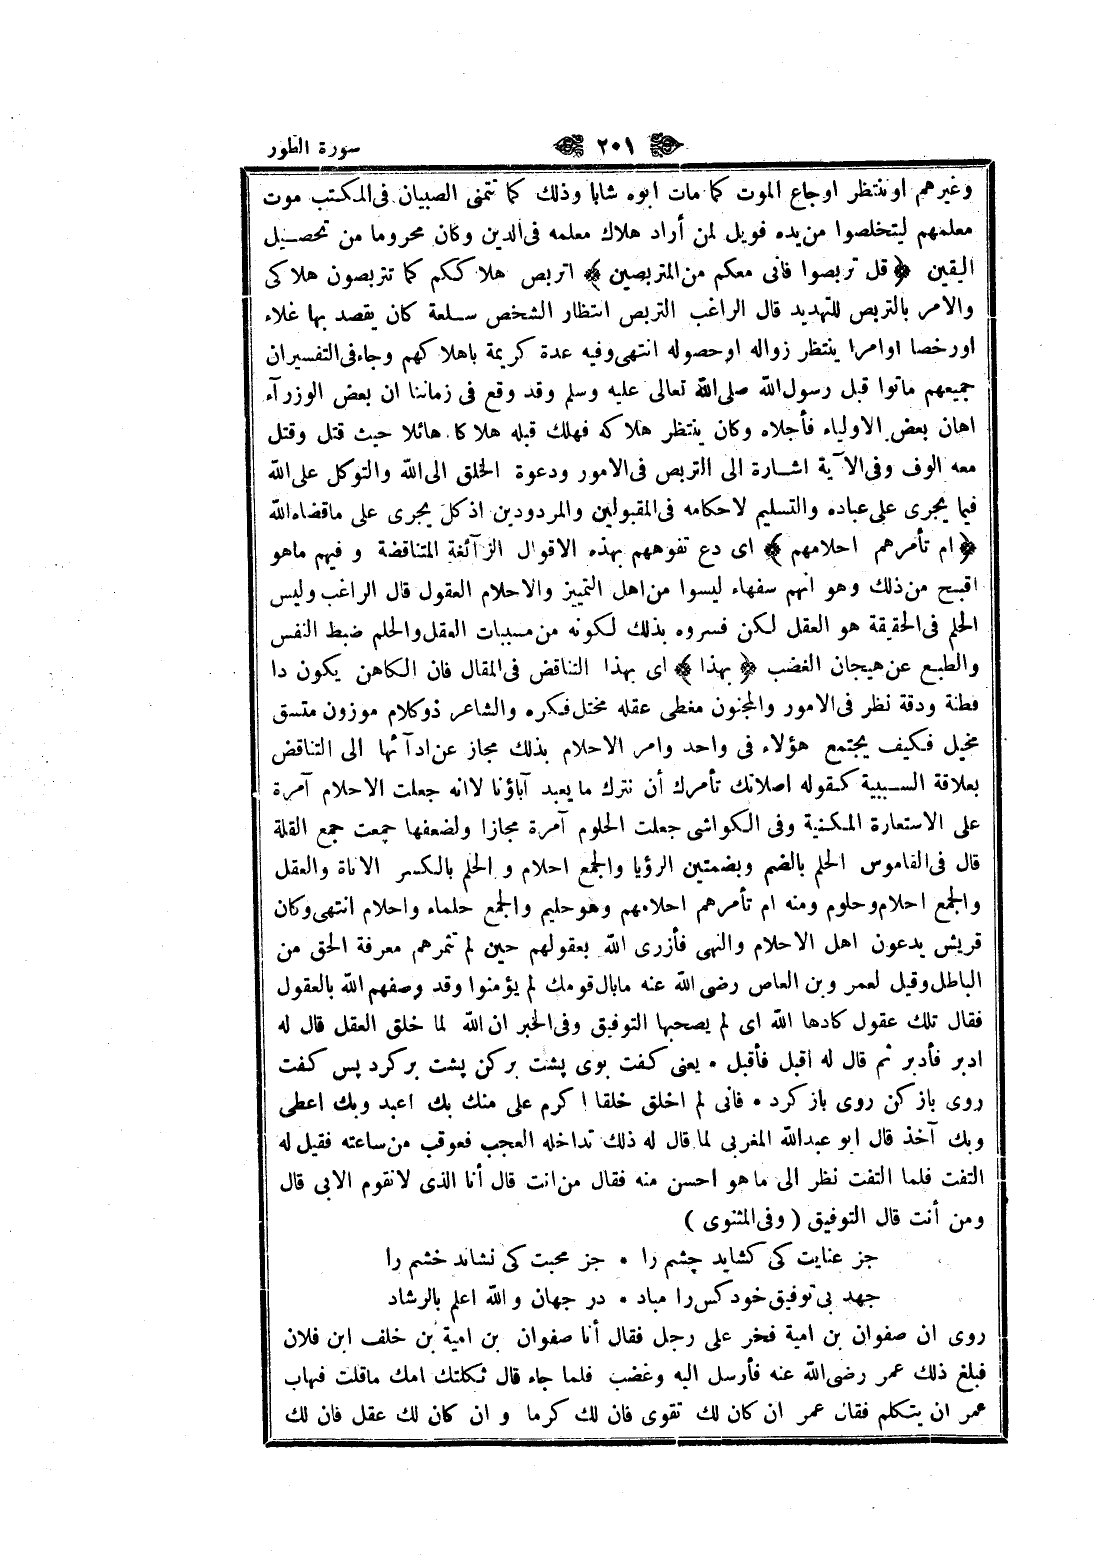 سورة الطور ٢٠١
وغيرهم او ننتظر اوجاع الموت كما مات ابوه شابا وذلك كما تتمنى الصبيان فى المكتب موت
معلمهم ليتخلصوا من يده فويل لمن أراد هلاك معلمه فى الدين وكان محروما من تحصيل
اليقين ﴿ قل تربصوا فانى معكم من المتربصين ﴾ اتربص هلاككم كما تتربصون هلاكى
والامر بالتربص للتهديد قال الراغب التربص انتظار الشخص سلعة كان يقصد بها غلاء
اورخصا اوامرا ينتظر زواله اوحصوله انتهى وفيه عدة كريمة باهلاكهم وجاء فى التفسير ان
جميعهم ماتوا قبل رسول الله صلى الله تعالى عليه وسلم وقد وقع فى زماننا ان بعض الوزرآء
اهان بعض الاولياء فأجلاه وكان ينتظر هلاكه فهلك قبله هلاكا هائلا حيث قتل وقتل
معه الوف وفى الآية اشارة الى التربص فى الامور ودعوة الخلق الى الله والتوكل على الله
فيما يجرى على عباده والتسليم لاحكامه فى المقبولين والمردودين اذ كل يجرى على ماقضاه الله
﴿ ام تأمرهم احلامهم ﴾ اى دع تفوههم بهذه الاقوال الزآئغة المتناقضة و فيهم ماهو
اقبح من ذلك وهو انهم سفهاء ليسوا من اهل التمييز والاحلام العقول قال الراغب وليس
الحلم فى الحقيقة هو العقل لكن فسروه بذلك لكونه من مسببات العقل والحلم ضبط النفس
والطبع عن هيجان الغضب ﴿ بهذا ﴾ اى بهذا التناقض فى المقال فان الكاهن يكون ذا
فطنة ودقة نظر فى الامور والمجنون مغطى عقله مختل فكره والشاعر ذو كلام موزون متسق
مخيل فكيف يجتمع هؤلاء فى واحد وامر الاحلام بذلك مجاز عن ادآئها الى التناقض
بعلاقة السببية كقوله اصلاتك تأمرك أن نترك مايعبد آباؤنا لاانه جعلت الاحلام آمرة
على الاستعارة المكنية وفى الكواشى جعلت الحلوم آمرة مجازا ولضعفها جمعت جمع القلة
قال فى القاموس الحلم بالضم وبضمتين الرؤيا والجمع احلام و الحلم بالكسر الاناة والعقل
والجمع احلام وحلوم ومنه ام تأمرهم احلامهم وهو حليم والجمع حلماء واحلام انتهى وكان
قريش يدعون اهل الاحلام والنهى فأزرى الله بعقولهم حين لم تثمرهم معرفة الحق من
الباطل وقيل لعمر وبن العاص رضى الله عنه مابال قومك لم يؤمنوا وقد وصفهم الله بالعقول
فقال تلك عقول كادها الله اى لم يصحبها التوفيق وفى الخبر ان الله لما خلق العقل قال له
ادبر فأدبر ثم قال له اقبل فأقبل • يعنى كفت بوى پشت بركن پشت بركرد پس كفت
روى بازكن روى بازكرد • فانى لم اخلق خلقا اكرم على منك بك اعبد وبك اعطى
وبك آخذ قال ابو عبدالله المغربى لما قال له ذلك تداخله العجب فعوقب من ساعته فقيل له
التفت فلما التفت نظر الى ماهو احسن منه فقال من انت قال أنا الذى لاتقوم الابى قال
ومن أنت قال التوفيق ( وفى المثنوى )
جز عنايت كى كشايد چشم را • جز محبت كى نشاند خشم را
جهد بى توفيق خود كس را مباد • در جهان والله اعلم بالرشاد
روى ان صفوان بن امية فخر على رجل فقال أنا صفوان بن امية بن خلف ابن فلان
فبلغ ذلك عمر رضى الله عنه فأرسل اليه وغضب فلما جاء قال ثكلتك امك ماقلت فهاب
عمر ان يتكلم فقال عمر ان كان لك تقوى فان لك كرما و ان كان لك عقل فان لك